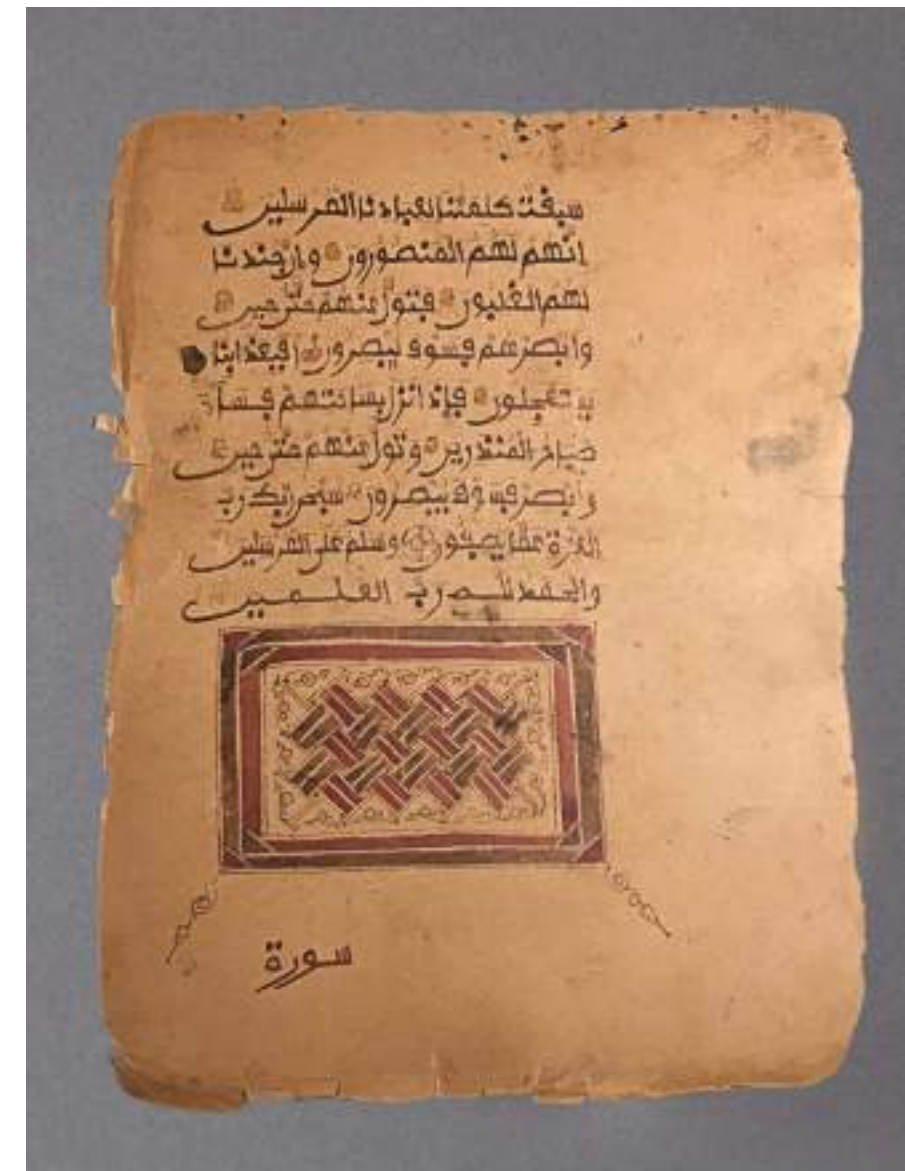 سبقت كلمتنا لعبادنا المرسلين
انهم لهم المنصورون وان جندنا
لهم الغلبون فتول عنهم حتى حين
وابصرهم فسوف يبصرون افبعذابنا
يستعجلون فإذا نزل بساحتهم فساء
صباح المنذرين وتول عنهم حتى حين
وابصر فسوف يبصرون سبحن ربك رب
العزة عما يصفون وسلم على المرسلين
والحمد لله رب العلمين
سورة